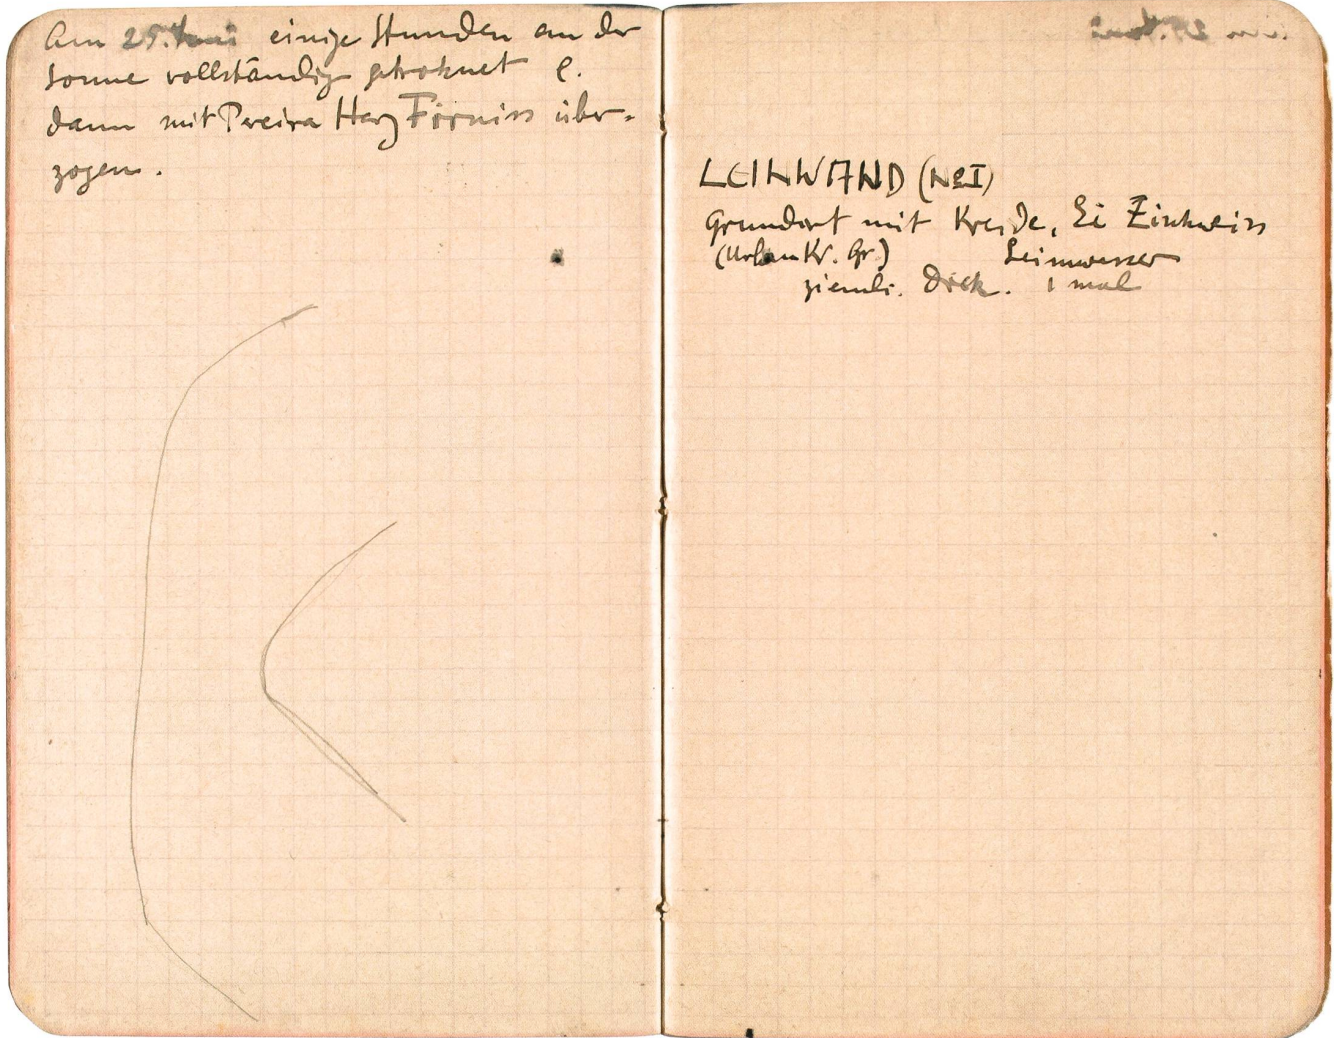 Am 25. Juni einige Stunden an der
Sonne vollständig getroknet e.
dann mit Pereira Harz Firniss über-
zogen.
LEINWAND (No I)
Grundirt mit Kreide, Ei Zinkweiss
(Urban Kr. Gr.) Leimwasser
ziemli. Dick. 1 mal